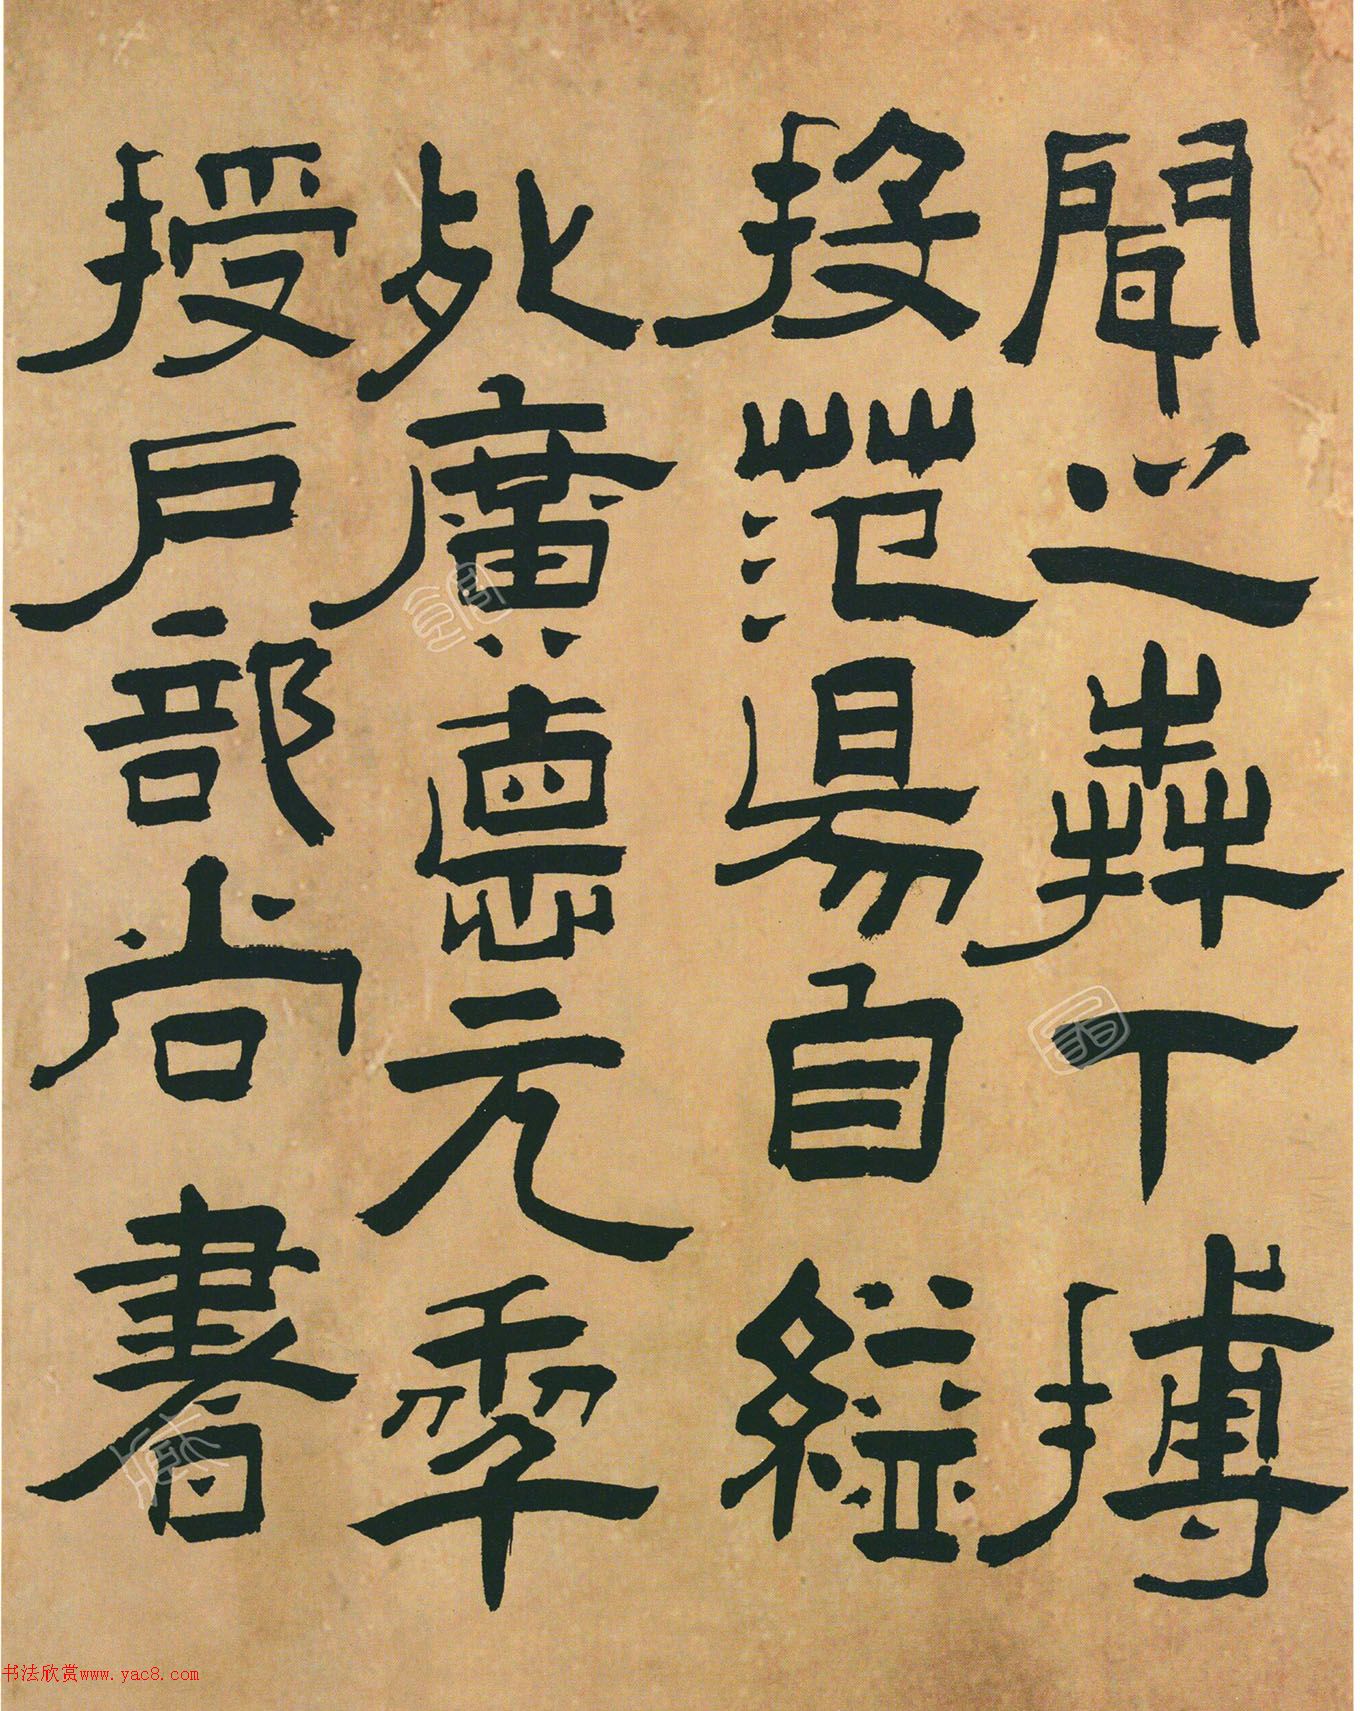 聞之犇丅搏
投范陽自縊
死廣悳元秊
授戶部尚書
书法欣赏www.yac8.com